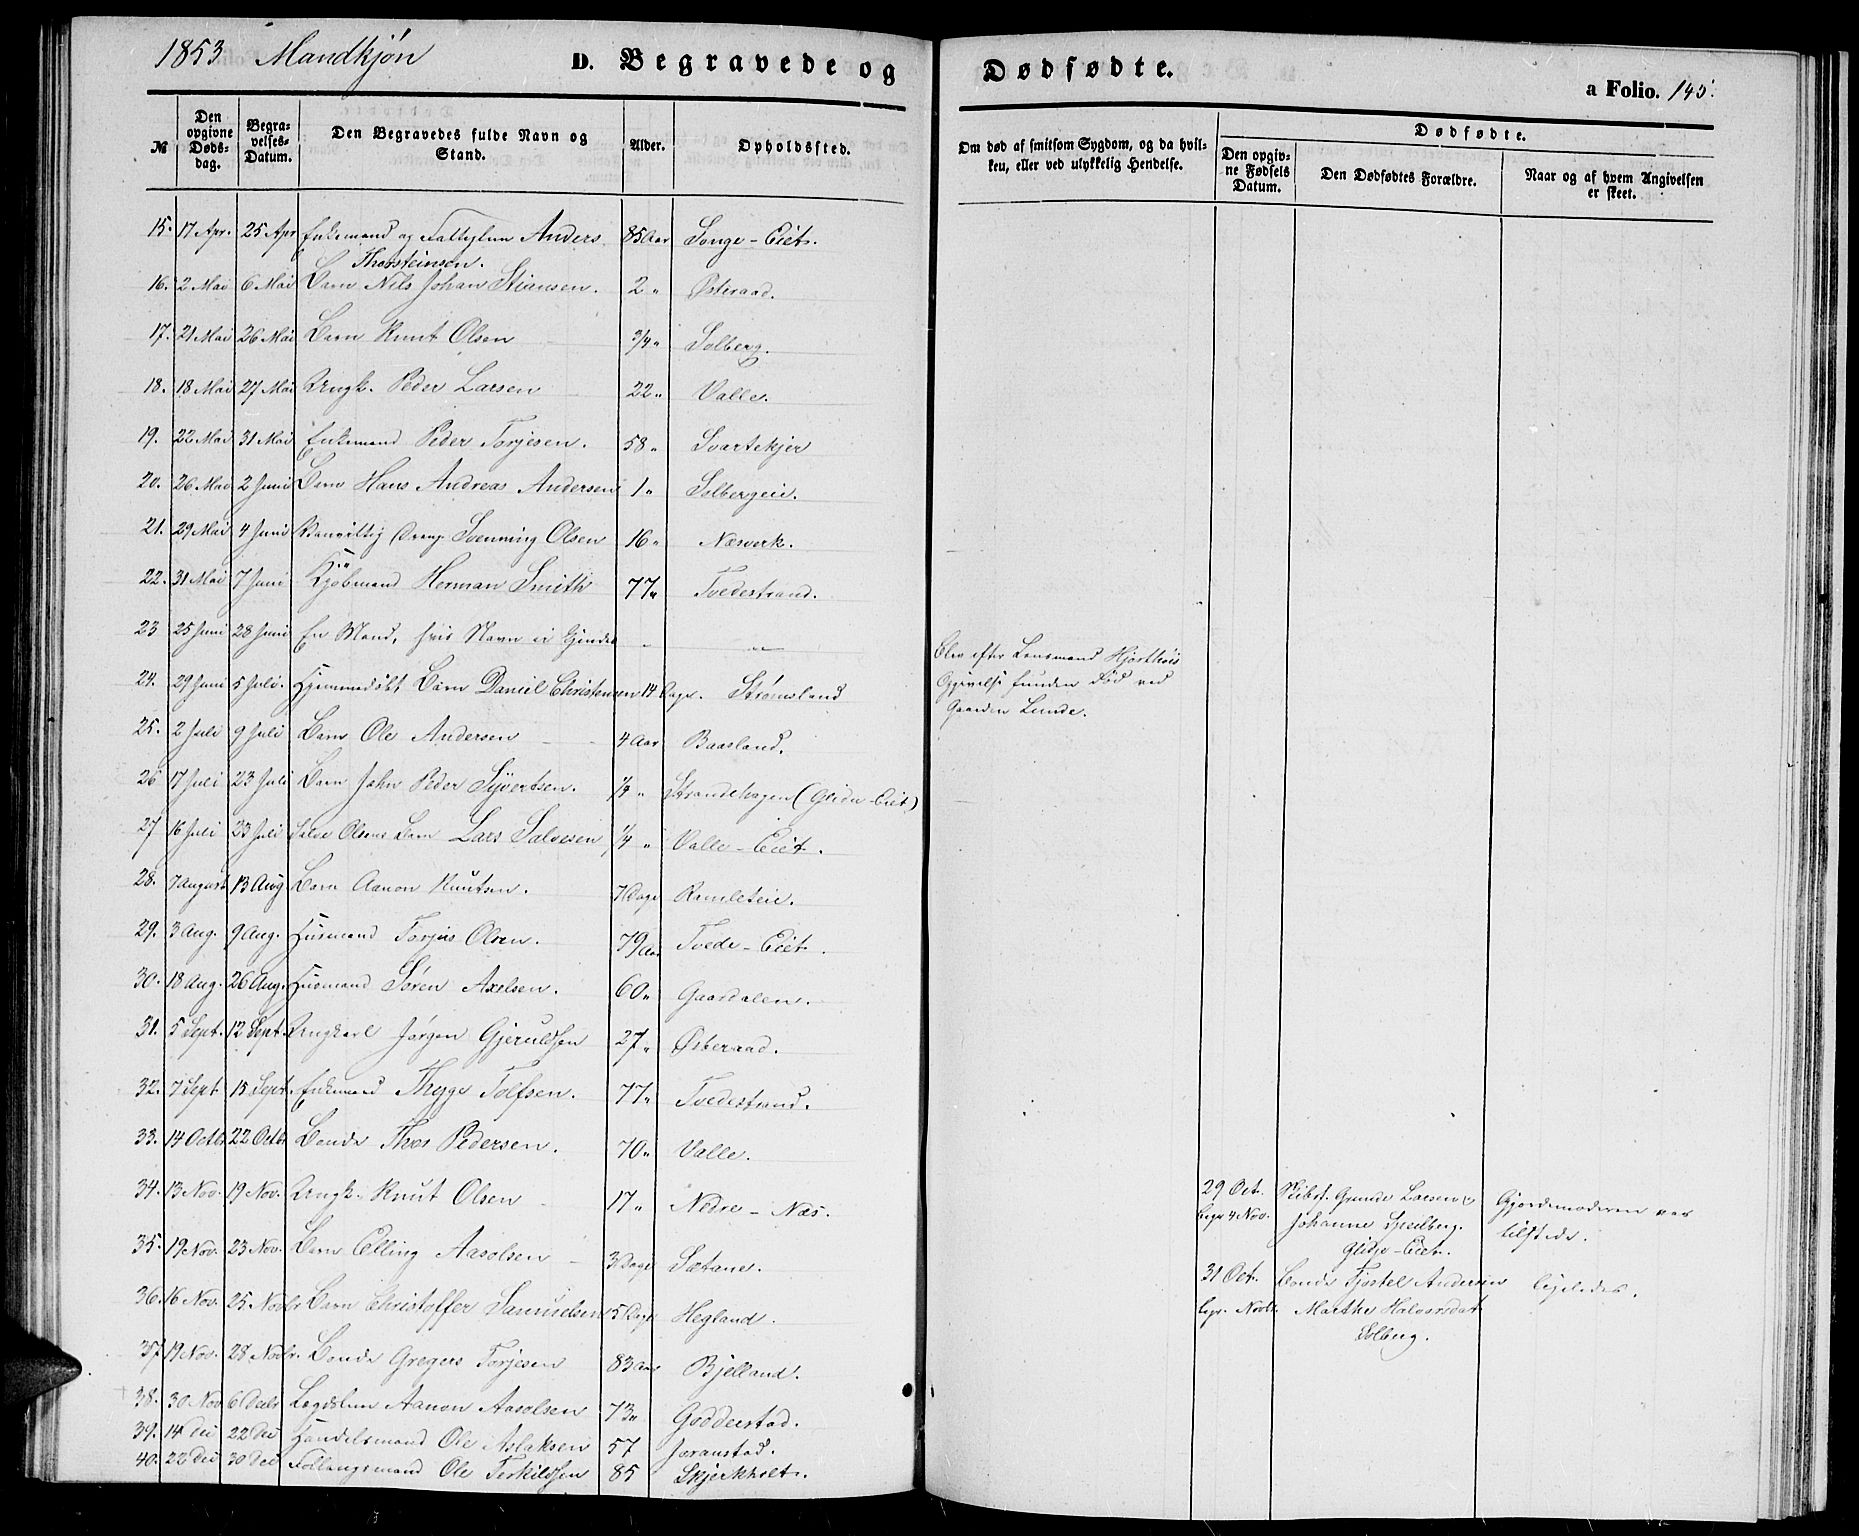 1853 Mandkjøn D. Begravede og Dødfødte. a Folio. 145.
№
Den opgivne Dødsdag.
Begravelses-Datum.
Den Begravedes fulde Navn og Stand.
Alder.
Opholdssted.
Om død af smitsom Sygdom, og da hvilken, eller ved ulykkelig Hendelse.
Dødfødte.
Den opgivne Fødsels Datum.
Den Dødfødtes Forældre.
Naar og af hvem Angivelsen er skeet.
15. 17 Apr. 25 Apr Enkemand og Anders 85 Aar Songe-Eiet.
Thorsteinsen.
16. 2 Mai 6 Mai Barn Nils Johan Stiansen. 2 " Østeraad.
17. 21 Mai 26 Mai Barn Knut Olsen 3/4 " Solberg.
18. 18 Mai 27 Mai Ungk. Peder Larsen 22 " Valle.
19. 22 Mai 31 Mai Enkemand Peder Torjesen. 58 " Svartekjer
20. 26 Mai 2 Juni Barn Hans Andreas Andersen 1 " Solbergeie.
21. 29 Mai 4 Juni Vanvittig Dreng Svenning Olsen 16 " Næsverk.
22. 31 Mai 7 Juni Kjøbmand Herman Smith 77 " Tvedestrand.
23 25 Juni 28 Juni En Mand, hvis Navn ei kjendes " "
Blev efter Lensmand Hjorthøis
Opgivelse funden død ved
Gaarden Lunde.
24. 29 Juni 5 Juli. Hjemmedøbt Barn Daniel Christensen 14 Dage. Strømsland
25. 2 Juli 9 Juli Barn Ole Andersen 4 Aar Baasland.
26 17 Juli 23 Juli Barn John Peder Syvertsen. 1/4 " Strandhagen (Glidje-Eiet)
27 16 Juli 23 Juli Salve Olsens Barn Lars Salvesen 1/4 " Valle-Eiet.
28. 7 August 13 Aug Barn Aanon Knutsen. 7 Dage Ramleteie.
29. 3 Aug. 9 Aug. Husmand Torjus Olsen. 79 Aar Tvede-Eiet.
30. 18 Aug. 26 Aug. Husmand Søren Axelsen. 60 " Gaasdalen.
31. 5 Sept. 12 Sept. Ungkarl Jørgen Gjeruldsen 27 " Østeraad.
32. 7 Sept 15 Sept. Enkemand Thyge Tolfsen. 77 " Tvedestrand.
33. 14 Octbr 22 Octbr Bonde Thor Pedersen. 70 " Valle.
34. 13 Nov. 19 Nov. Ungk. Knut Olsen 17 " Nedre-Næs.
29 Oct. Grunde Larsen Gjordemoderen var
begr 4 Nov. Johanne Speilberg. tilstede.
Glidje-Eiet.
35. 19 Nov. 23 Nov. Barn Elling Aasolsen 3 Dage Sætane.
31 Oct. Bonde Fjostel Andersen ligeledes.
36. 16 Nov. 25 Novbr Barn Christoffer Samuelsen 5 Dage Hegland.
begr. Novbr. Marthe Halvorsdat
Solberg.
37. 19 Nov. 28 Novbr. Bonde Gregers Torjesen 83 Aar Bjelland.
38. 30 Nov 6 Decbr Lægdslem Aanon Aasolsen 73 " Goderstad.
39. 14 Dec 22 Dec Handelsmand Ole Aslaksen 57 Joranstad.
40. 22 Dec 30 Dec Ole Terkildsen 85 Skjerkholt.